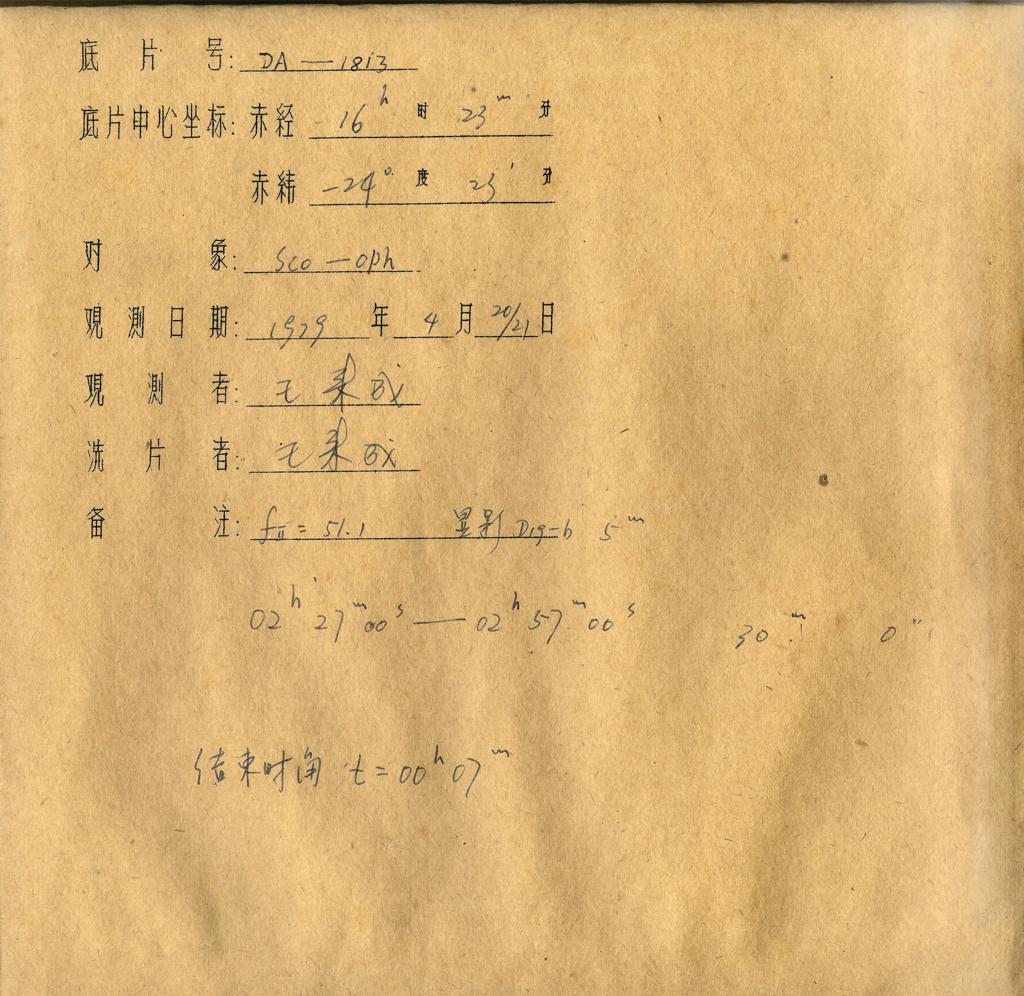 底片号: DA—1813
底片中心坐标: 赤経 16ʰ 时 23ᵐ 分
赤緯 -24° 度 23′ 分
对象: Sco—Oph
观测日期: 1979 年 4 月 20/21 日
观测者: 王来成
洗片者: 王来成
备注: fⅡ=51.1 显影 D19-b 5ᵐ
02ʰ 27ᵐ 00ˢ — 02ʰ 57ᵐ 00ˢ 30ᵐ
结束时角 t=00ʰ 07ᵐ